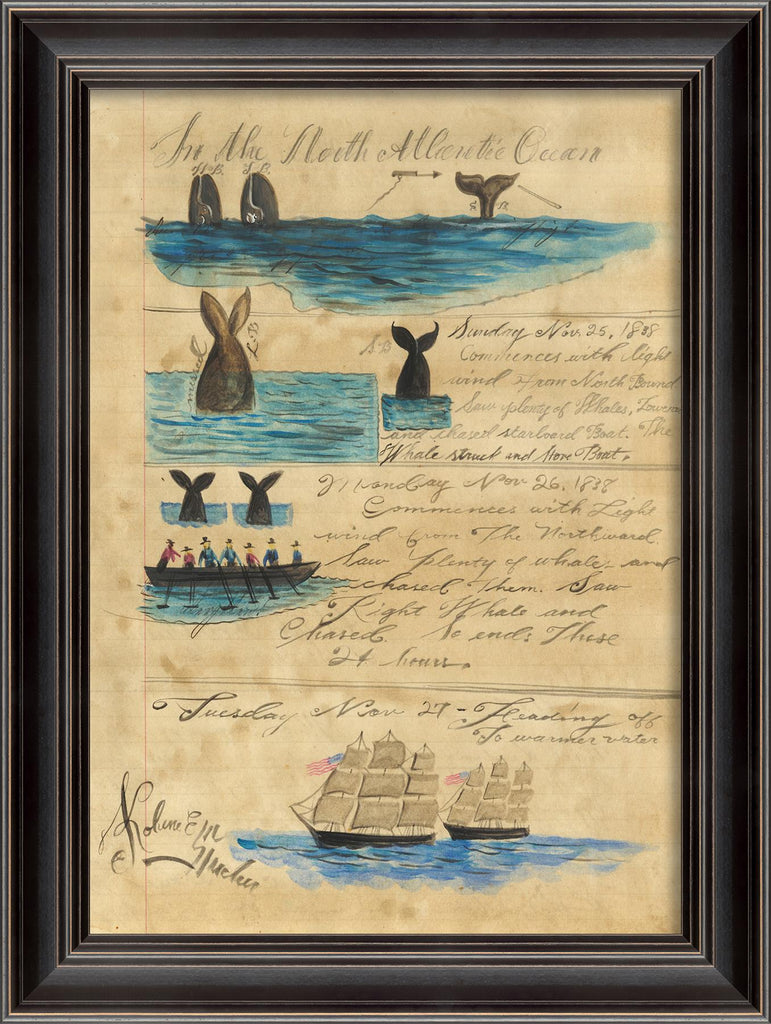 In the North Atlantic Ocean
S.B.
S B
L.B
missed
S B
Sunday Nov. 25, 1838
Commences with light
wind from North Bound
Saw plenty of Whales, Lowered
and chased starboard Boat. The
Whale struck and stove Boat.
Monday Nov 26, 1838
Commences with Light
wind from The Northward.
Saw plenty of whales and
chased Them. Saw
Right Whale and
Chased. So ends These
24 hours.
Tuesday Nov 27 - Heading off
To warmer water